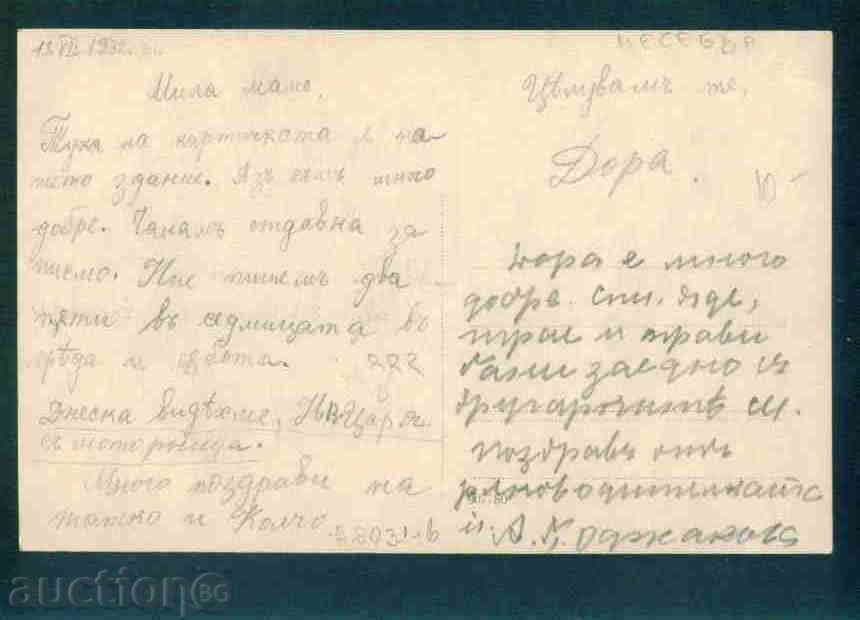 13.VII.1932
Мила мамо,
Тука на картичката е на-
шето здание. Азъ съмъ много
добре. Чакамъ отдавна за
писмо. Ние пишемъ два
пѫти въ седмицата въ
срѣда и сѫбота.
Днеска видѣхме, Н.В. Царя
съ моторница.
Много поздрави на
татко и Колчо
Д8031-6
НЕСЕБЪР
Цѣлувамъ те,
Дора.
10-
Дора е много
добре. Спи, яде,
играе и прави
бани заедно съ
другарочкитѣ си.
Поздравъ отъ
рѫководителката
и А. Коджакова
аукцион BG